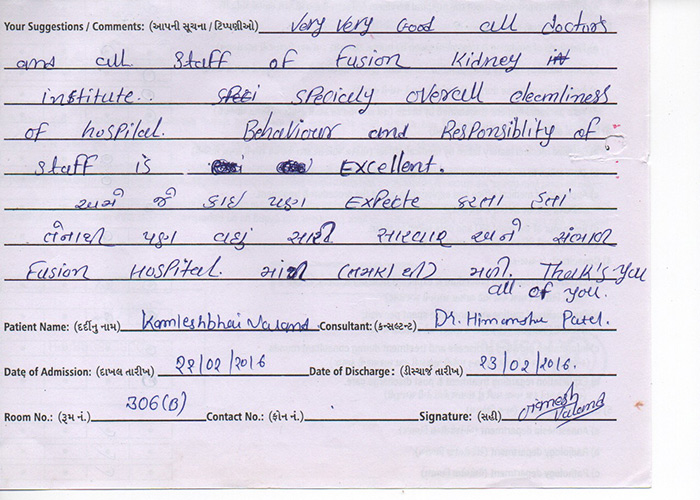 Your Suggestions / Comments: (આપની સૂચના / ટિપ્પણીઓ) Very Very Good all doctors
and all staff of Fusion Kidney
institute.. specialy overall cleanliness
of hospital. Behaviour and Responsiblity of
staff is Excellent.
અમે જે કાંઇ પણ Expecte કરતા હતાં
તેનાથી પણ વધું સારી સારવાર અને સંભાળ
Fusion Hospital. માંથી (તમારા થી) મળી. Thank's you
all of you.
Patient Name: (દર્દીનું નામ) Kamleshbhai Valand Consultant: (કન્સલ્ટન્ટ) Dr. Himanshu Patel.
Date of Admission: (દાખલ તારીખ) 22/02/2016 Date of Discharge : (ડીસ્ચાર્જ તારીખ) 23/02/2016.
Room No.: (રૂમ નં.) 306(B) Contact No.: (ફોન નં.) Signature: (સહી)